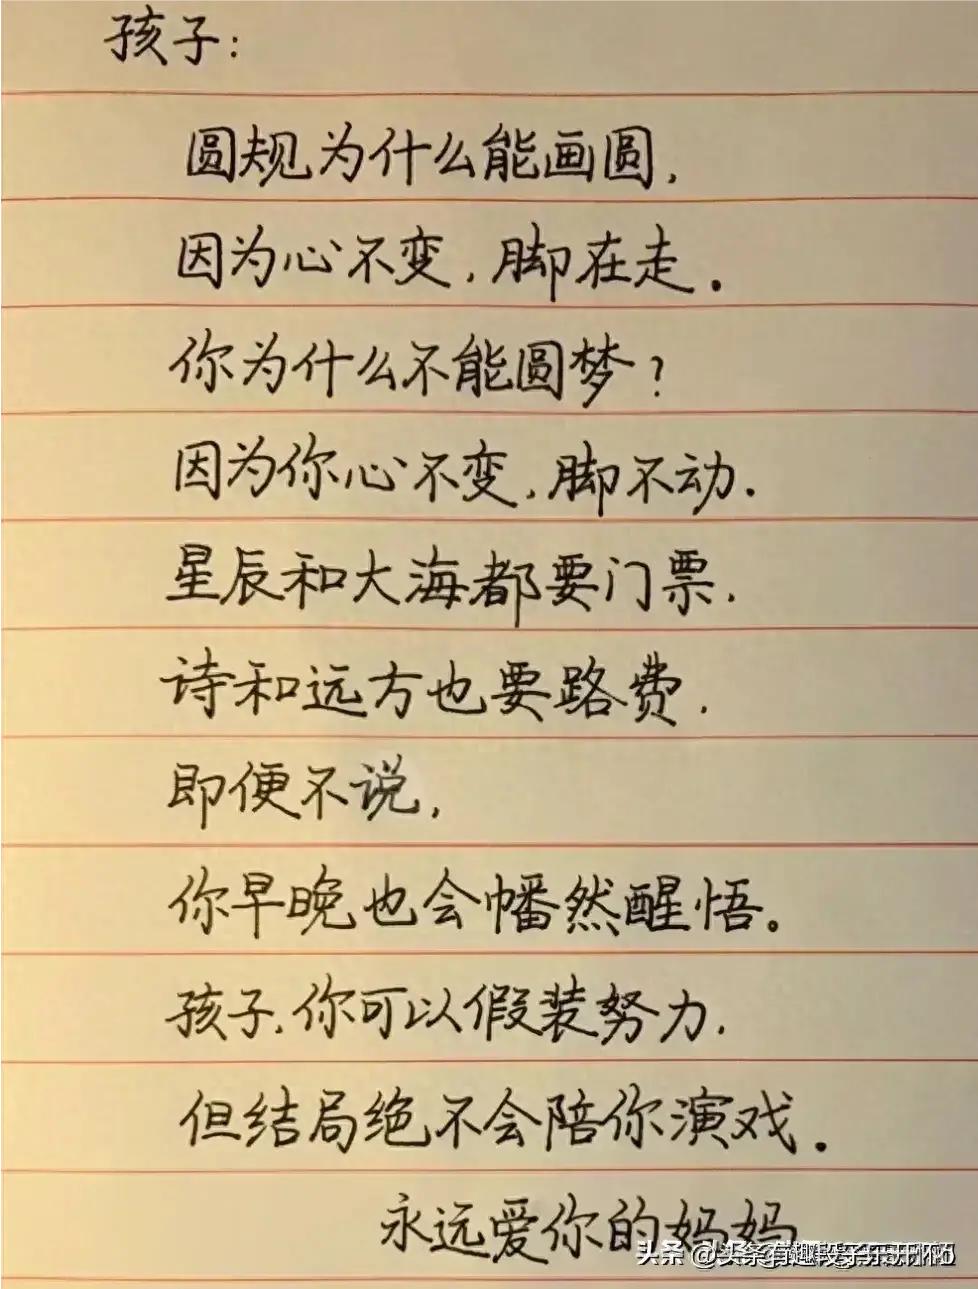 孩子:
圆规为什么能画圆,
因为心不变,脚在走.
你为什么不能圆梦?
因为你心不变,脚不动.
星辰和大海都要门票,
诗和远方也要路费,
即便不说,
你早晚也会幡然醒悟。
孩子,你可以假装努力,
但结局绝不会陪你演戏.
永远爱你的妈妈
头条